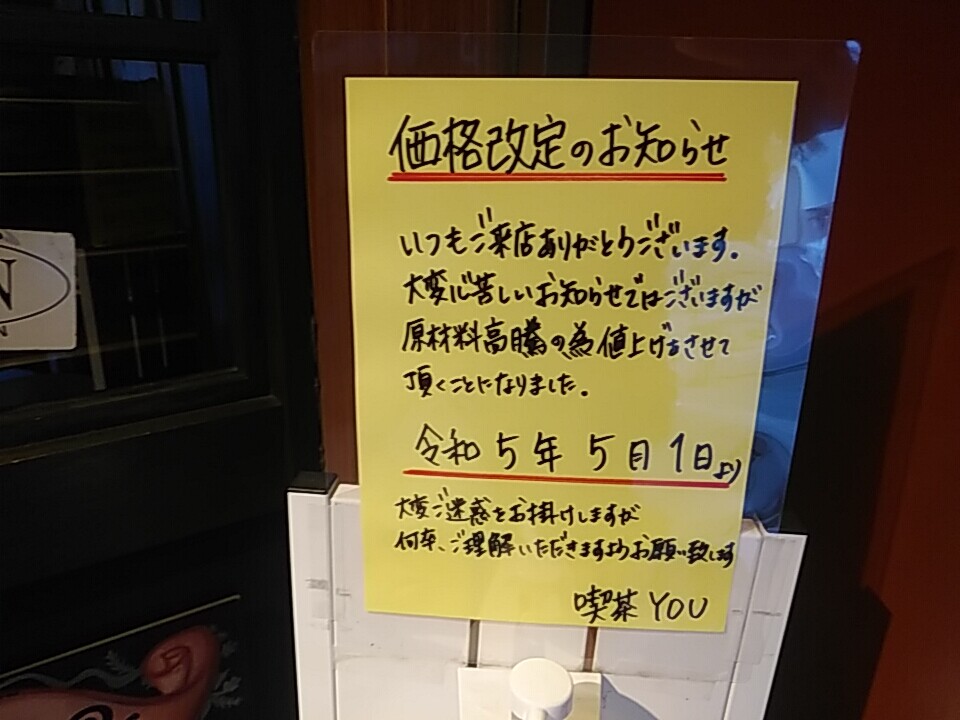 価格改定のお知らせ
いつもご来店ありがとうございます。
大変心苦しいお知らせではございますが
原材料高騰の為値上げをさせて
頂くことになりました。
令和5年5月1日より
大変ご迷惑をお掛けしますが
何卒、ご理解いただきますようお願い致します
喫茶YOU
N
N